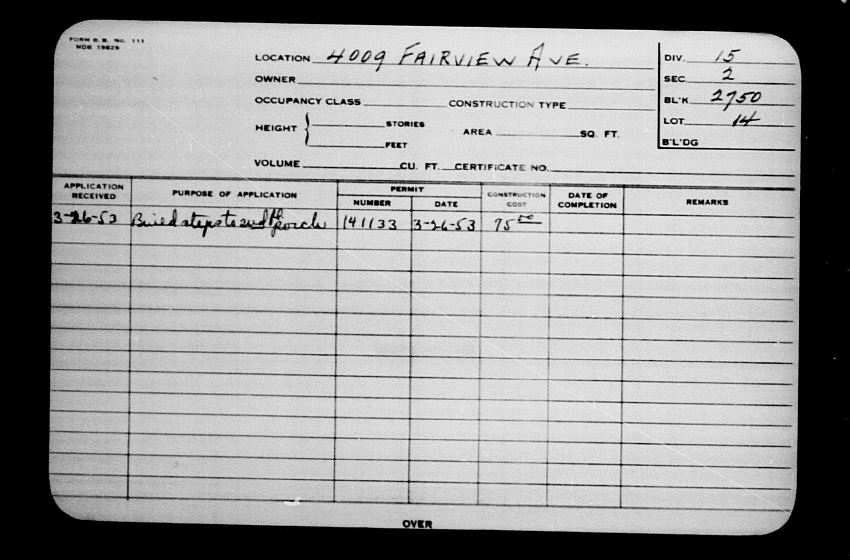 FORM B.B. No. 111
MDB 19829
LOCATION 4009 FAIRVIEW AVE.
OWNER
OCCUPANCY CLASS CONSTRUCTION TYPE
HEIGHT { STORIES
FEET
AREA SQ. FT.
VOLUME CU. FT. CERTIFICATE NO.
DIV. 15
SEC. 2
BL'K 2750
LOT 14
B'L'DG
APPLICATION RECEIVED PURPOSE OF APPLICATION PERMIT NUMBER DATE CONSTRUCTION COST DATE OF COMPLETION REMARKS
3-26-53 Build steps to porch 141133 3-26-53 75.00
OVER